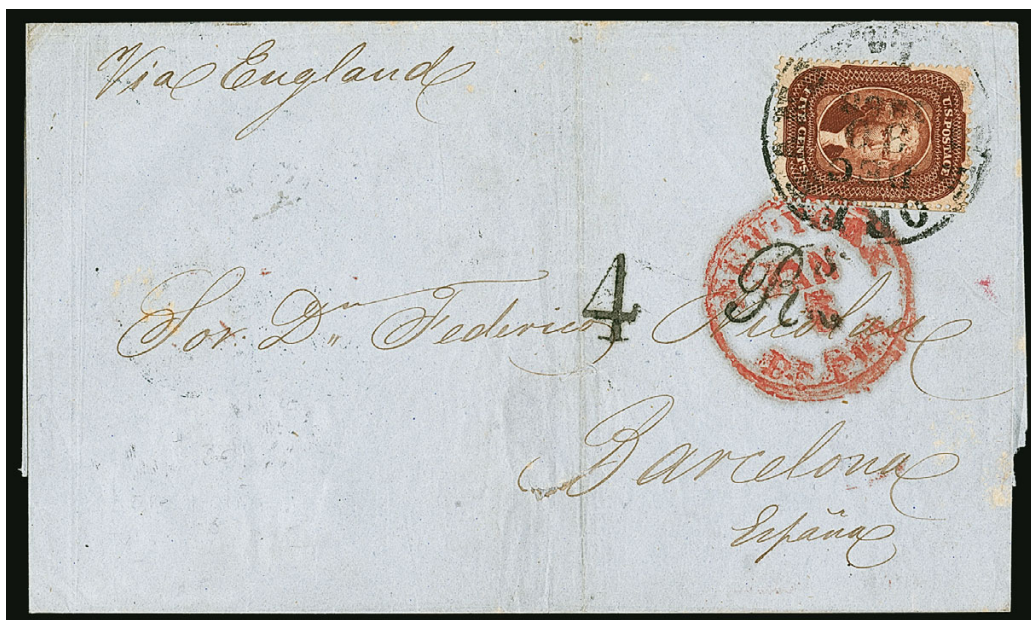 Via England
U.S. POSTAGE
FIVE CENTS
DEC
NEW-YORK
BR. PKT
4 Rs
Sor. Dn Federico Nicolau
Barcelona
España